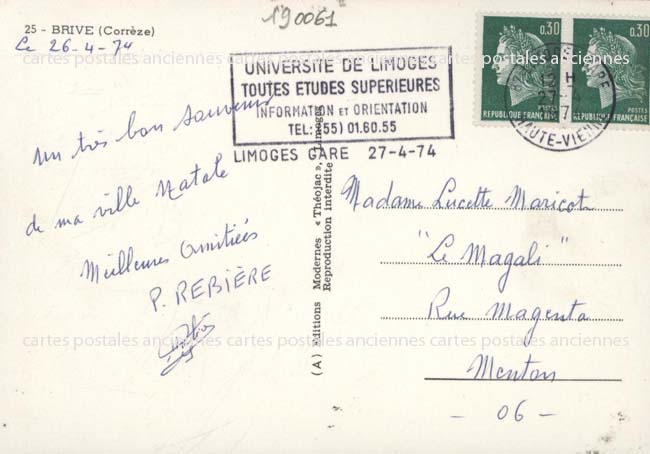 190061
25 - BRIVE (Corrèze)
Le 26-4-74
cartes postales anciennes cartes postales anciennes cartes postales anciennes
UNIVERSITE DE LIMOGES
TOUTES ETUDES SUPERIEURES
INFORMATION ET ORIENTATION
TEL: (55) 01.60.55
LIMOGES GARE 27-4-74
0.30
POSTES
REPUBLIQUE FRANÇAISE
0.30
POSTES
REPUBLIQUE FRANÇAISE
HAUTE-VIENNE
Un très bon souvenir
de ma ville Natale
Meilleures Amitiés
P. REBIÈRE
(A) Editions Modernes « Théojac », Limoges
Reproduction Interdite
Madame Lucette Maricot
"Le Magali"
Rue Magenta
Menton
- 06 -
cartes postales anciennes cartes postales anciennes cartes postales anciennes